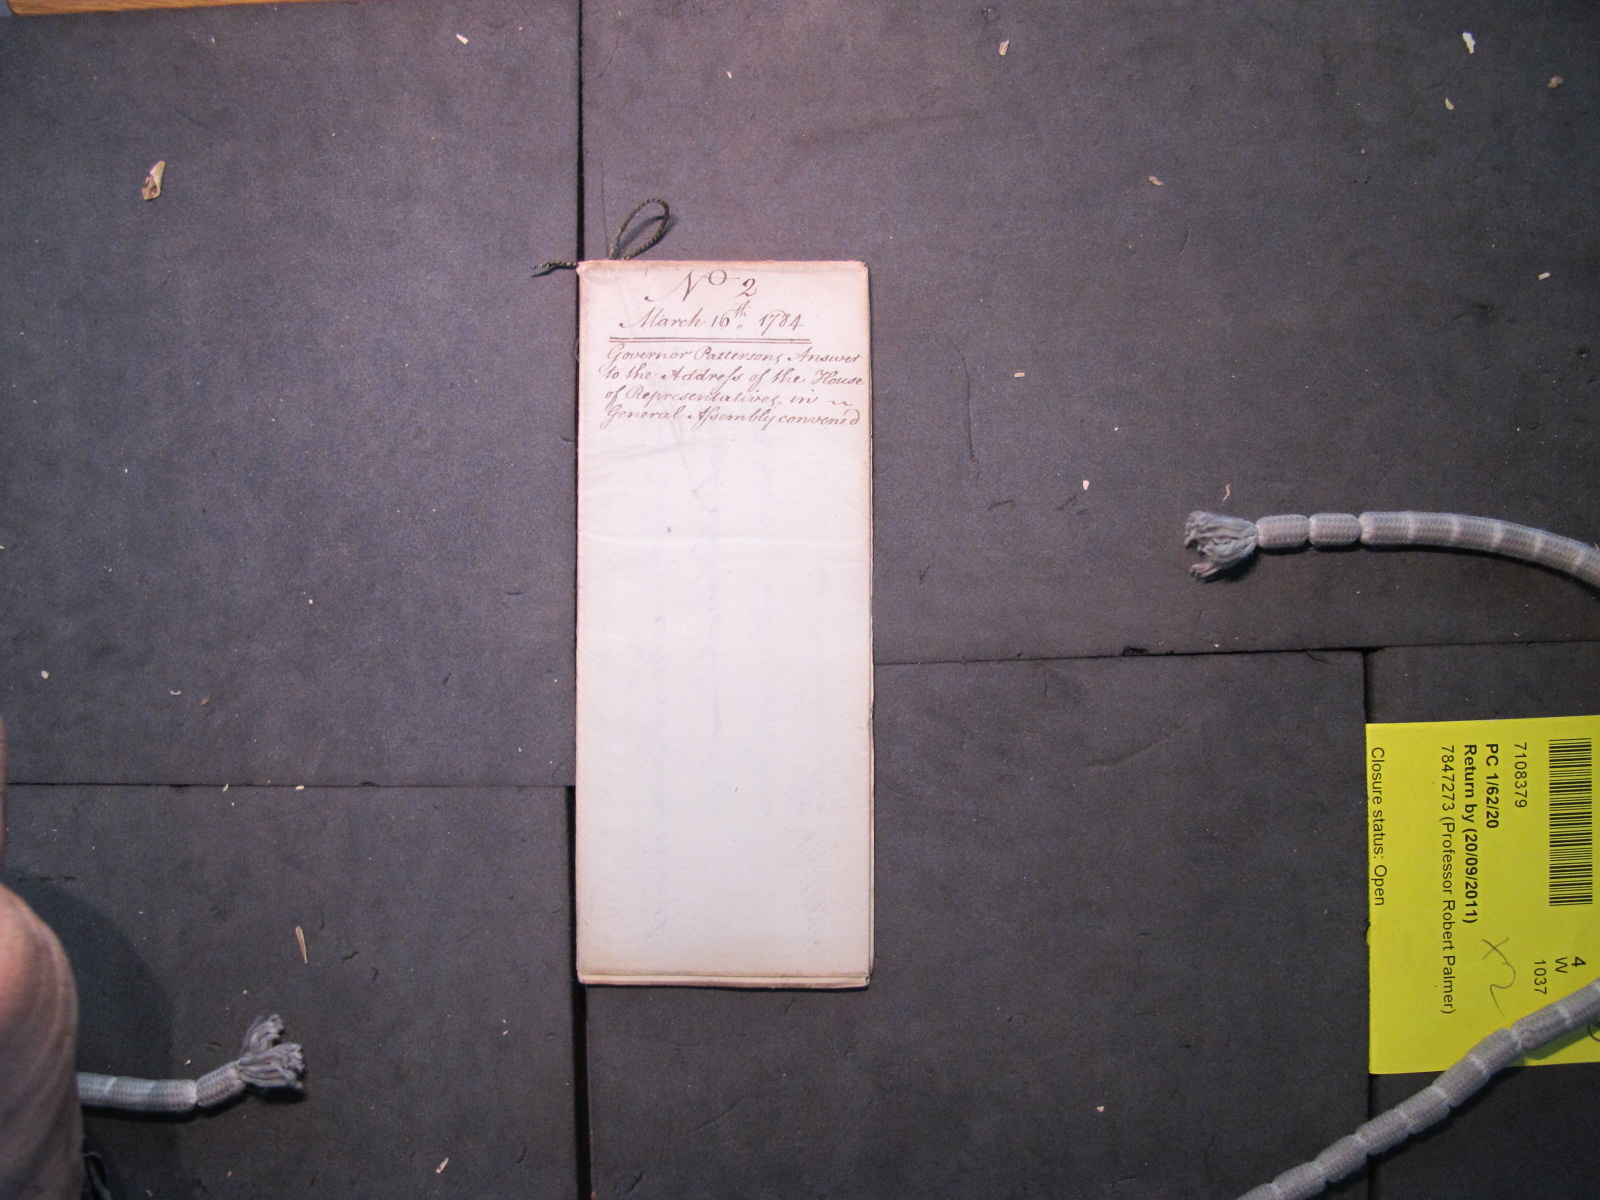 No 2
March 16th 1784
Governor Pattersons Answer
to the Address of the House
of Representatives, in
General Assembly convened
4
W
1037
7108379
PC 1/62/20
Return by (20/09/2011)
7847273 (Professor Robert Palmer)
Closure status: Open